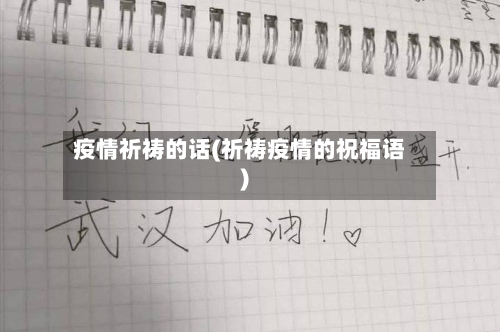 疫情祈祷的话(祈祷疫情的祝福语
)
我们
盛开.
武汉加油!♡